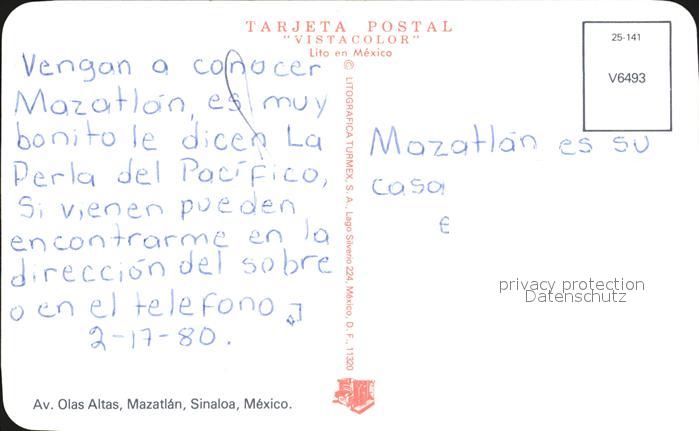 TARJETA POSTAL
"VISTACOLOR"
Lito en México
25-141
V6493
Vengan a conocer
Mazatlán, es muy
bonito le dicen La
Perla del Pacífico,
Si vienen pueden
encontrarme en la
dirección del sobre
o en el telefono
2-17-80.
© LITOGRAFICA TURMEX, S. A., Lago Silverio 224, México, D. F., 11320
Mazatlán es su
casa
e
privacy protection
Datenschutz
Av. Olas Altas, Mazatlán, Sinaloa, México.